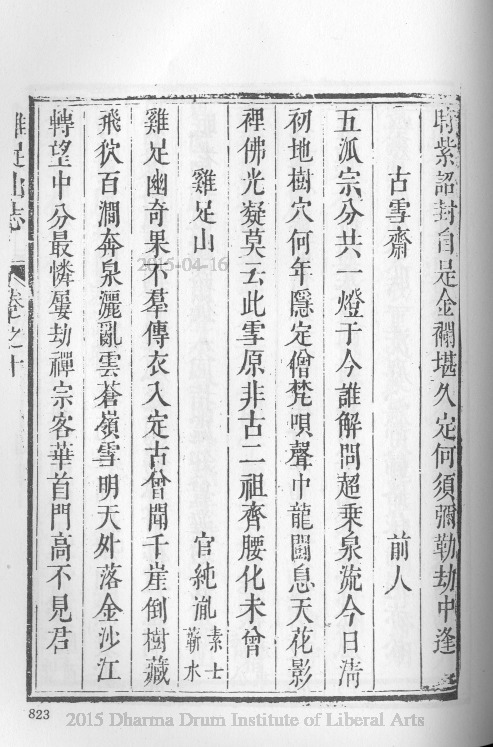 時紫詔封自是金襴堪久定何須彌勒劫中逢
古雪齋 前人
五派宗分共一燈于今誰解問超乘泉流今日清
初地樹穴何年隱定僧梵唄聲中龍鬬息天花影
裡佛光凝莫云此雪原非古二祖齊腰化未曾
雞足山 官純胤 素士蘄水
雞足幽奇果不羣傳衣入定古曾聞千崖倒樹藏
飛狖百澗奔泉灑亂雲蒼嶺雪明天外落金沙江
轉望中分最憐屢劫禪宗客華首門高不見君
雞足山志 卷之十
823
2015-04-16
2015 Dharma Drum Institute of Liberal Arts